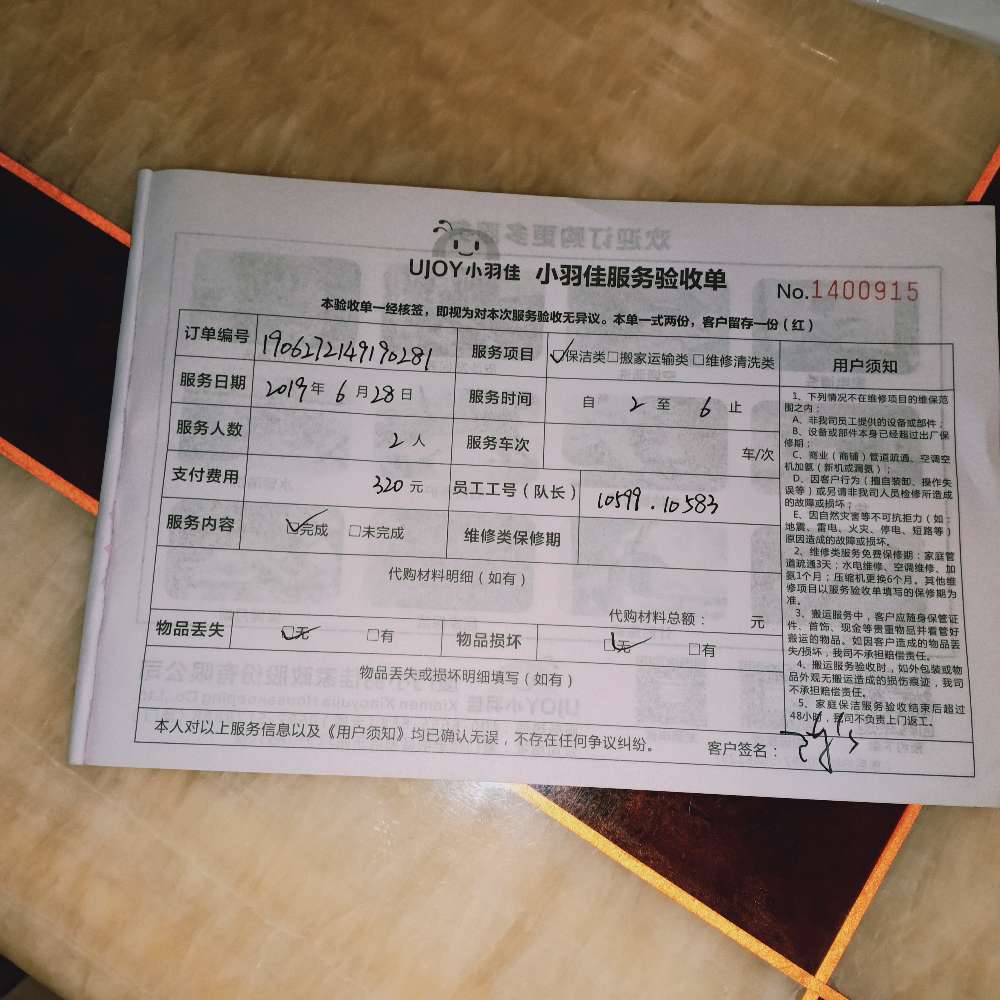 UJOY小羽佳 小羽佳服务验收单
No.1400915
本验收单一经核签，即视为对本次服务验收无异议。本单一式两份，客户留存一份（红）
订单编号 1906272149190281 服务项目 ☑保洁类□搬家运输类 □维修清洗类
服务日期 2019年 6月28日 服务时间 自 2 至 6 止
服务人数 2人 服务车次 车/次
支付费用 320元 员工工号（队长） 10599.10583
服务内容 ☑完成 □未完成 维修类保修期
代购材料明细（如有）
代购材料总额： 元
物品丢失 ☑无 □有 物品损坏 ☑无 □有
物品丢失或损坏明细填写（如有）
本人对以上服务信息以及《用户须知》均已确认无误，不存在任何争议纠纷。
客户签名：
用户须知
1、下列情况不在维修项目的维保范
围之内：
A、非我司员工提供的设备或部件；
B、设备或部件本身已经超过出厂保
修期；
C、商业（商铺）管道疏通、空调空
机加氨（新机或漏氨）；
D、因客户行为（擅自装卸、操作失
误等）或另请非我司人员检修所造成
的故障或损坏；
E、因自然灾害等不可抗拒力（如：
地震、雷电、火灾、停电、短路等）
原因造成的故障或损坏。
2、维修类服务免费保修期：家庭管
道疏通3天；水电维修、空调维修、加
氨1个月；压缩机更换6个月。其他维
修项目以服务验收单填写的保修期为
准。
3、搬运服务中，客户应随身保管证
件、首饰、现金等贵重物品并看管好
搬运的物品。如因客户造成的物品丢
失/损坏，我司不承担赔偿责任。
4、搬运服务验收时，如外包装或物
品外观无搬运造成的损伤痕迹，我司
不承担赔偿责任。
5、家庭保洁服务验收结束后超过
48小时，我司不负责上门返工。